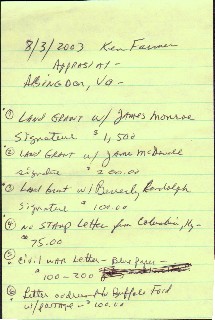 8/3/2003 Ken Farmer
Appraisal -
Abingdon, Va -
① Land Grant w/ James Monroe
Signature $1,500
② Land Grant w/ James McDowell
signature $200.00
③ Land Grant w/ Beverly Randolph
Signature $100.00
④ No Stamp Letter from Columbia, Ky -
$75.00
⑤ Civil War Letter - Blue Paper -
$100-200
⑥ Letter addressed to Buffalo Ford
w/ postage - $100.00